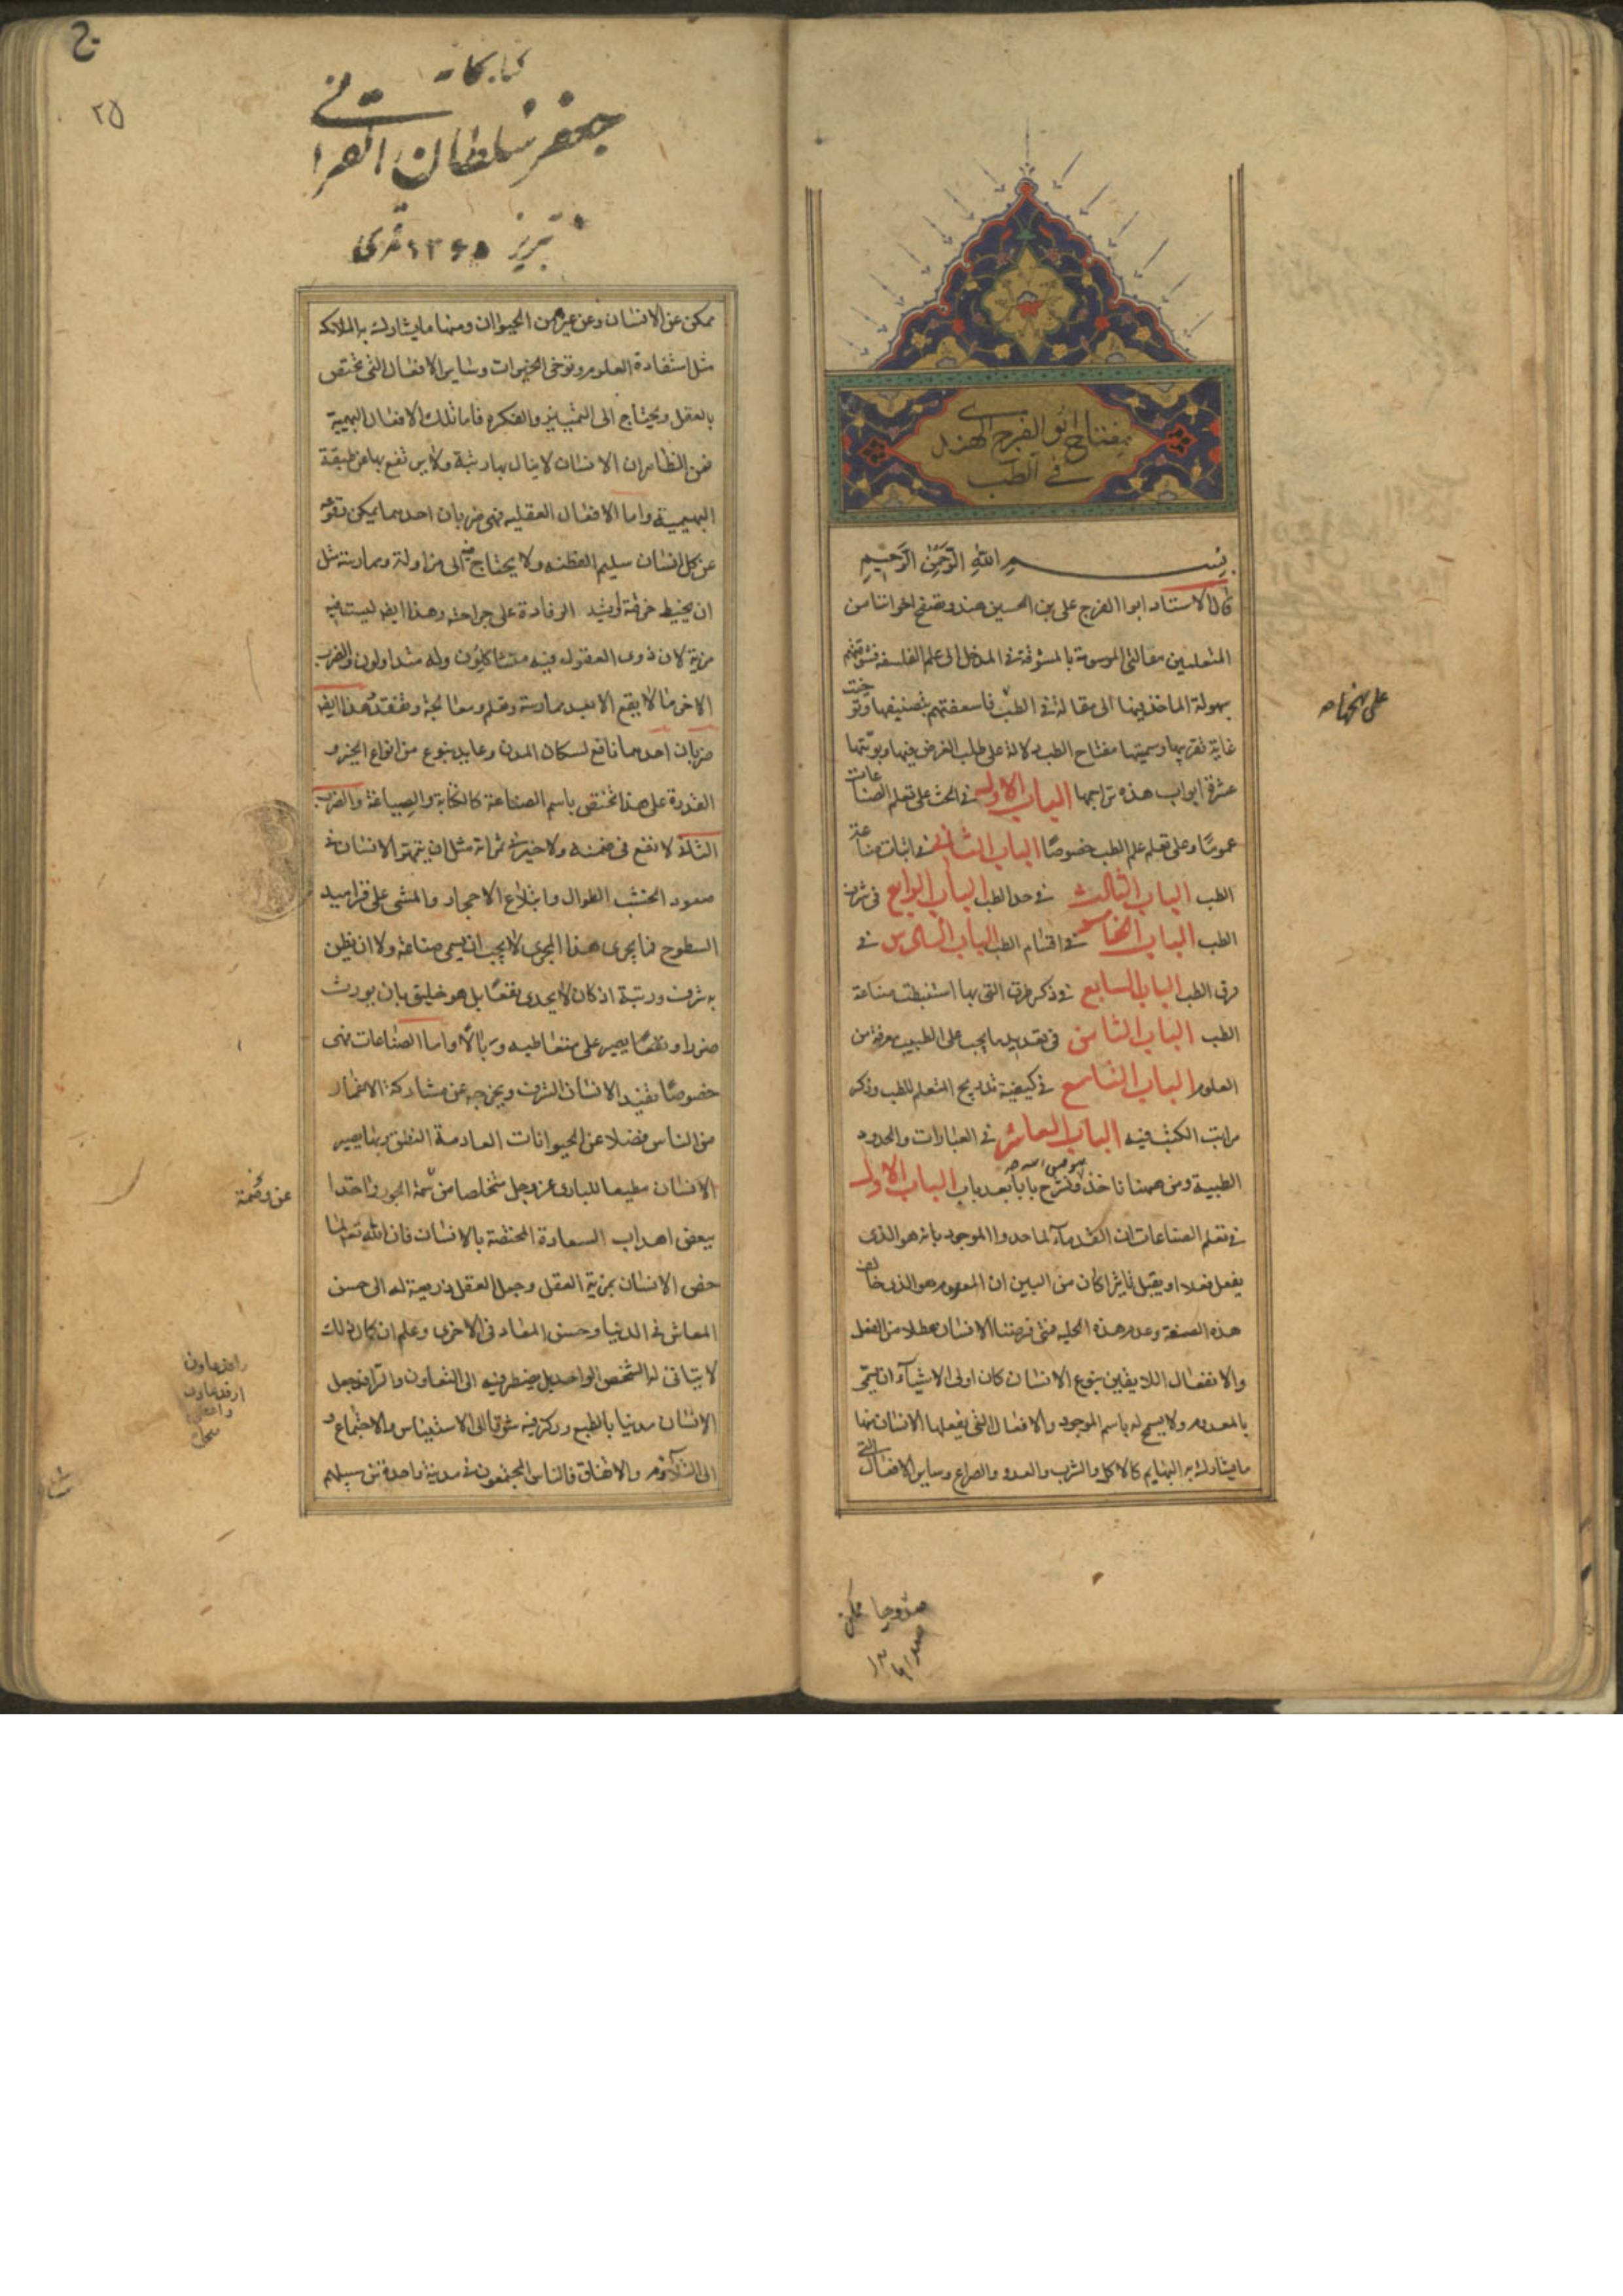 مفتاح ابو الفرج الهندى
فى الطب
بسم الله الرحمن الرحيم
قال الاستاد ابو الفرج على بن الحسين هندو تصفح اخواننا من
المتعلمين مقالتى الموسومة بالمشوقة فى المدخل الى علم الفلسفة فشوقتهم
سهولة الماخذ فيها الى مقالة فى الطب فاسعفتهم بتصنيفها وتوخيت
غاية تقريبها وسميتها مفتاح الطب دلالة على طلب الغرض فيها وبوبتها
عشرة ابواب هذه تراجمها الباب الاول فى الحث على تعلم الصناعات
عموما وعلى تعلم علم الطب خصوصا الباب الثانى فى اثبات صناعة
الطب الباب الثالث فى حد الطب الباب الرابع فى شرف
الطب الباب الخامس فى اقسام الطب الباب السادس فى
فرق الطب الباب السابع فى ذكر طرق التى بها استنبطت صناعة
الطب الباب الثامن فى تعديد ما يجب على الطبيب معرفته من
العلوم الباب التاسع فى كيفية تدريج المتعلم للطب وذكر
مراتب الكتب فيه الباب العاشر فى العبارات والحدود
الطبية ومن ههنا ناخذ ونشرح بابا بعد باب الباب الاول
فى تعلم الصناعات ان القدمآء لما حدوا الموجود بانه هو الذى
يفعل فعلا او يقبل تاثيرا كان من البين ان المعدوم هو الذى خالف
هذه الصنعة وعدم هذه الحلية فمتى فرضنا الانسان معطلا من الفعل
والانفعال اللايقين بنوع الانسان كان اولى الاشيآء ان يسمى
بالمعدوم ولا يسمح له باسم الموجود والافعال التى يفعلها الانسان منها
ما يشاركه به البهايم كالاكل والشرب والعدو والصراع وساير الافعال التى
على نحوها صح
جعفر سلطان القرائى
تبريز ١٣٦٥ قمرى
٢٥
ممكن عن الانسان وعن غيره من الحيوان ومنها ما يشارك به الملائكة
مثل استفادة العلوم وتوخى الخيرات وساير الافعال التى تختص
بالعقل ويحتاج الى التمييز والفكره فاما تلك الافعال البهيمية
فمن الظاهر ان الانسان لا ينال بها رتبة ولا يرتفع بها عن طبقة
البهيمية واما الافعال العقليه فهى ضربان احدهما يمكن وقوعه
عن كل انسان سليم الفطنه ولا يحتاج فيه الى مزاولة وممارسة مثل
ان يخيط خرقة او يشد الرفادة على جراحته وهذا ايضا ليست فيه
مزية لان ذوى العقول فيه متشاكلون وله متداولون والضرب
الاخر ما لا يقع الا بعد ممارسة وتعلم ومعالجة وتفقد وهذا ايضا
ضربان احدهما نافع لسكان المدن وعايد بنوع من انواع الخير و
القدرة على هذا تختص باسم الصناعة كالكتابة والصياغة والضرب
الثانى لا نفع فى ضمنه ولا خير فى ثمراته مثل ان يتمهر الانسان فى
صعود الخشب الطوال وابتلاع الاحجار والمشى على قراميد
السطوح فما يجرى هذا المجرى لا يجب ان يسمى صناعة ولا ان يظن
به شرف ورتبة اذ كان لا يجدى نفعا بل هو خليق بان يورث
ضررا ونقصا يصير على متعاطيه وبالا واما الصناعات فهى
خصوصا تفيد الانسان الشرف ويخرجه عن مشاركة الاغمار
من الناس فضلا عن الحيوانات العادمة النطق وبها يصير
الانسان مطيعا للبارى عز وجل متخلصا من سمة الجور واخذا
ببعض اهداب السعادة المختصة بالانسان فان الله تعالى لما
خص الانسان بمزية العقل وجعل العقل ذريعة له الى حسن
المعاش فى الدنيا وحسن المعاد فى الاخرى وعلم ان كمال ذلك
لا يتاتى له الشخص الواحد بل يضطر فيه الى التعاون والترافد جعل
الانسان مدنيا بالطبع وركز فيه شوقا الى الاستيناس والاجتماع و
الى التلاؤم والاتفاق فالناس المجتمعون فى مدينة واحدة من سبيلهم